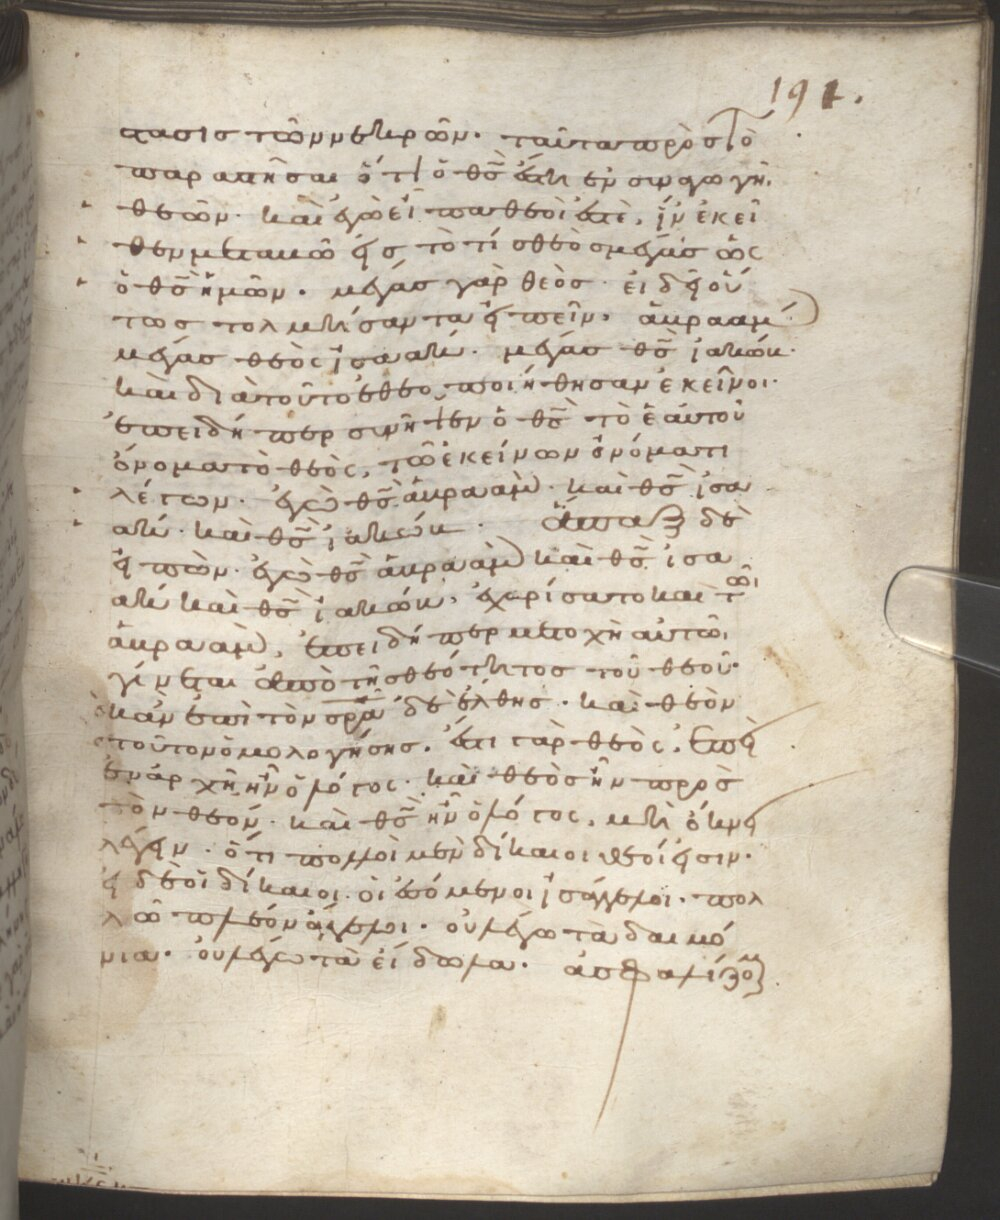 191.
στασις τῶν νεκρῶν. ταῦτα πρὸς τὸ
παραστῆσαι ὅτι ὁ θς ἔστι ἐν συναγωγῆ
θεῶν. καὶ ἐγὼ εἶπα θεοί ἐστε, ἵν' ἐκεῖ
θεν μεταβῶ εἰς τὸ τίς θεὸς μέγας ὡς
ὁ θς ἡμῶν. μέγας γὰρ θεὸς. εἰ δεῖ οὕ
τως τολμήσαντα εἰπεῖν. ἁβραὰμ
μέγας θεὸς ἰσαάκ. μέγας θς ἰακώβ.
καὶ διὰ τοῦτο ἐθεοποιήθησαν ἐκεῖνοι.
ἐπειδήπερ συνῆψεν ὁ θς τὸ ἑαυτοῦ
ὄνομα τὸ θεὸς, τῶ ἐκείνων ὀνόματι
λέγων. ἐγὼ θς ἁβραὰμ. καὶ θς ἰσα
ὰκ. καὶ θς ἰακώβ. ἅπαξ δὲ
εἰπὼν. ἐγὼ θς ἁβραὰμ καὶ θς ἰσα
ὰκ καὶ θς ἰακώβ, ἐχαρίσατο καὶ τῶι
ἁβραὰμ, ἐπειδήπερ μετοχὴ αὐτῶι
γίνεται ἀπὸ τῆς θεότητος τοῦ θεοῦ.
κἂν ἐπὶ τὸν σρα δὲ ἔλθης. καὶ θεὸν
τοῦτον ὁμολογήσης. ἔστι γὰρ θεὸς. ἐπεὶ
ἐν ἀρχῆ ἦν ὁ λόγος. καὶ θεὸς ἦν πρὸς
τὸν θεόν. καὶ θς ἦν ὁ λόγος. μὴ ὄκνει
λέγειν. ὅτι πολλοὶ μὲν δίκαιοι θεοί εἰσιν.
εἰ δὲ οἱ δίκαιοι οἱ ἑπόμενοι ἰσάγγελοι. πολ
λῶ πλέον ἄγγελοι. οὐ λέγω τὰ δαιμό
νια. οὐ λέγω τὰ εἴδωλα. ἀσφαλίζομ